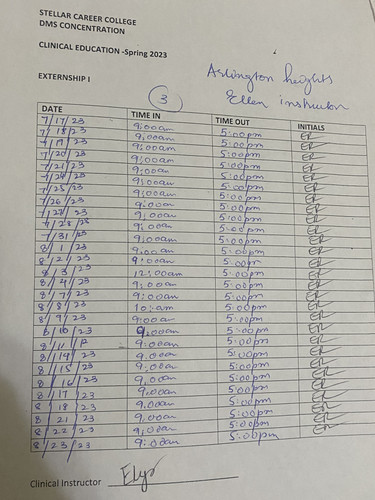 STELLAR CAREER COLLEGE
DMS CONCENTRATION
CLINICAL EDUCATION -Spring 2023
Arlington heights
EXTERNSHIP I
3
Ellen instructor
DATE TIME IN TIME OUT INITIALS
7/17/23 9:00am 5:00pm ER
7/18/23 9:00am 5:00pm ER
7/19/23 9:00am 5:00pm ER
7/20/23 9:00am 5:00pm ER
7/21/23 9:00am 5:00pm ER
7/24/23 9:00am 5:00pm ER
7/25/23 9:00am 5:00pm ER
7/26/23 9:00am 5:00pm ER
7/27/23 9:00am 5:00pm ER
7/28/23 9:00am 5:00pm ER
7/31/23 9:00am 5:00pm ER
8/1/23 9:00am 5:00pm ER
8/2/23 9:00am 5:00pm ER
8/3/23 12:00am 5:00pm ER
8/4/23 9:00am 5:00pm ER
8/7/23 9:00am 5:00pm ER
8/8/23 10:am 5:00pm ER
8/9/23 9:00am 5:00pm ER
8/10/23 9:00am 5:00pm ER
8/11/ 9:00am 5:00pm ER
8/14/23 9:00am 5:00pm ER
8/15/23 9:00am 5:00pm ER
8/16/23 9:00am 5:00pm ER
8/17/23 9:00am 5:00pm ER
8/18/23 9:00am 5:00pm ER
8/21/23 9:00am 5:00pm ER
8/22/23 9:00am 5:00pm ER
8/23/23 9:00am 5:00pm ER
Clinical Instructor